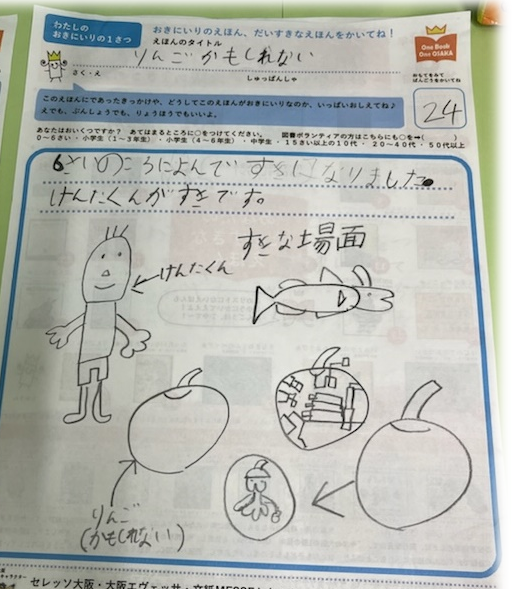 わたしの
おきにいりの1さつ
おきにいりのえほん、だいすきなえほんをかいてね!
えほんのタイトル
りんごかもしれない
さく・え
しゅっぱんしゃ
One Book
One OSAKA
おもてをみて
ばんごうをかいてね
24
このえほんにであったきっかけや、どうしてこのえほんがおきにいりなのか、いっぱいおしえてね♪
えでも、ぶんしょうでも、りょうほうでもいいよ。
あなたはおいくつですか? あてはまるところに○をつけてください。 図書ボランティアの方はこちらにも○を➡( )
0~6さい・小学生(1~3年生)・小学生(4~6年生)・中学生・15さい以上の10代・20~40代・50代以上
6さいのころによんですきになりました。
けんたくんがすきです。
すきな場面
けんたくん
りんご
(かもしれない)
セレッソ大阪・大阪エヴェッサ・文紙